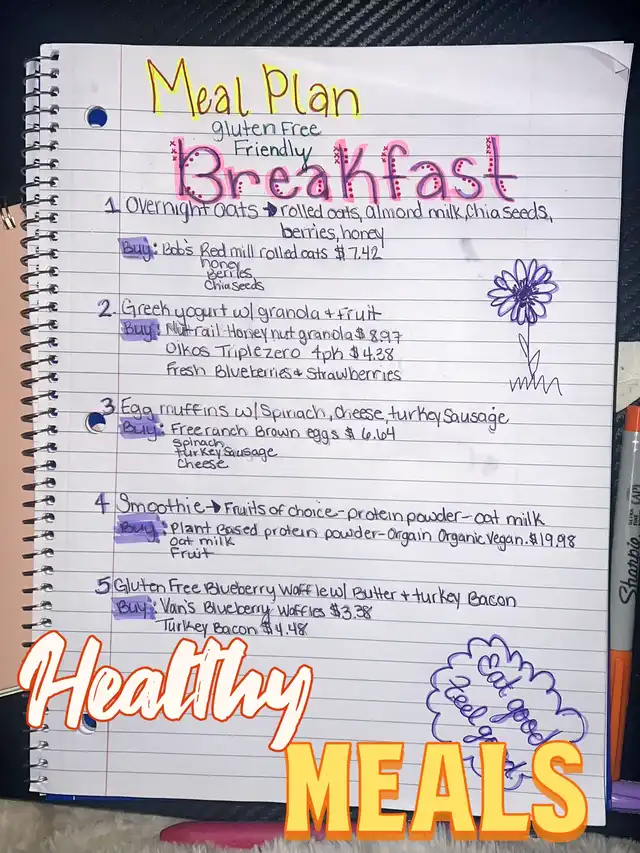 Meal Plan
gluten free
Friendly
Breakfast
1. Overnight oats → rolled oats, almond milk, chia seeds,
berries, honey
Buy: Bob's Red mill rolled oats $7.42
honey
Berries
Chia seeds
2. Greek yogurt w/ granola + Fruit
Buy: Nutrail Honey nut granola $8.97
Oikos Triple zero 4pk $4.38
Fresh Blueberries + Strawberries
3 Egg muffins w/ Spinach, Cheese, turkey sausage
Buy: Free ranch Brown eggs $6.64
spinach
turkey sausage
cheese
4 Smoothie → Fruits of choice - protein powder - oat milk
Buy: Plant Based protein powder - Orgain Organic Vegan. $19.98
oat milk
Fruit
5 Gluten Free Blueberry Waffle w/ Butter + turkey Bacon
Buy: Van's Blueberry Waffles $3.38
Turkey Bacon $4.48
Eat good
Feel good
Healthy
MEALS
Sharpie